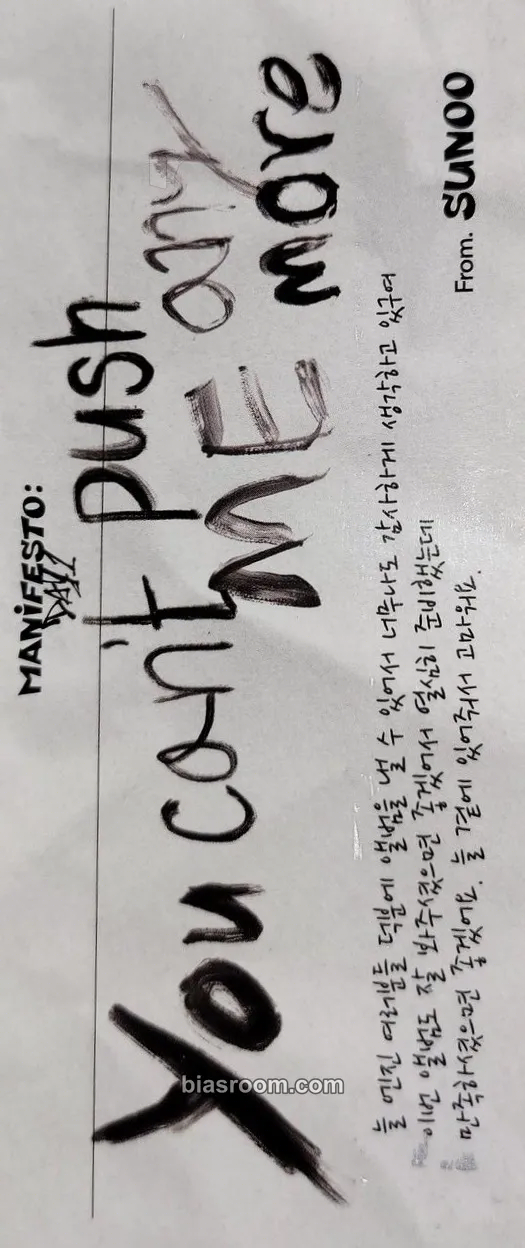 MANiFESTO:
DAY1
You can't push
ME any
more
늘 엔진 여러분들 덕분에 앨범을 낼 수 있어서 너무나도 감사하게 생각하고 있구여
이번 앨범도 잘 봐주셨으면 좋겠어서 열심히 준비했는데
만족하셨으면 좋겠어요. 늘 곁에 있어줘서 고마워요.
From. SUNOO
biasroom.com